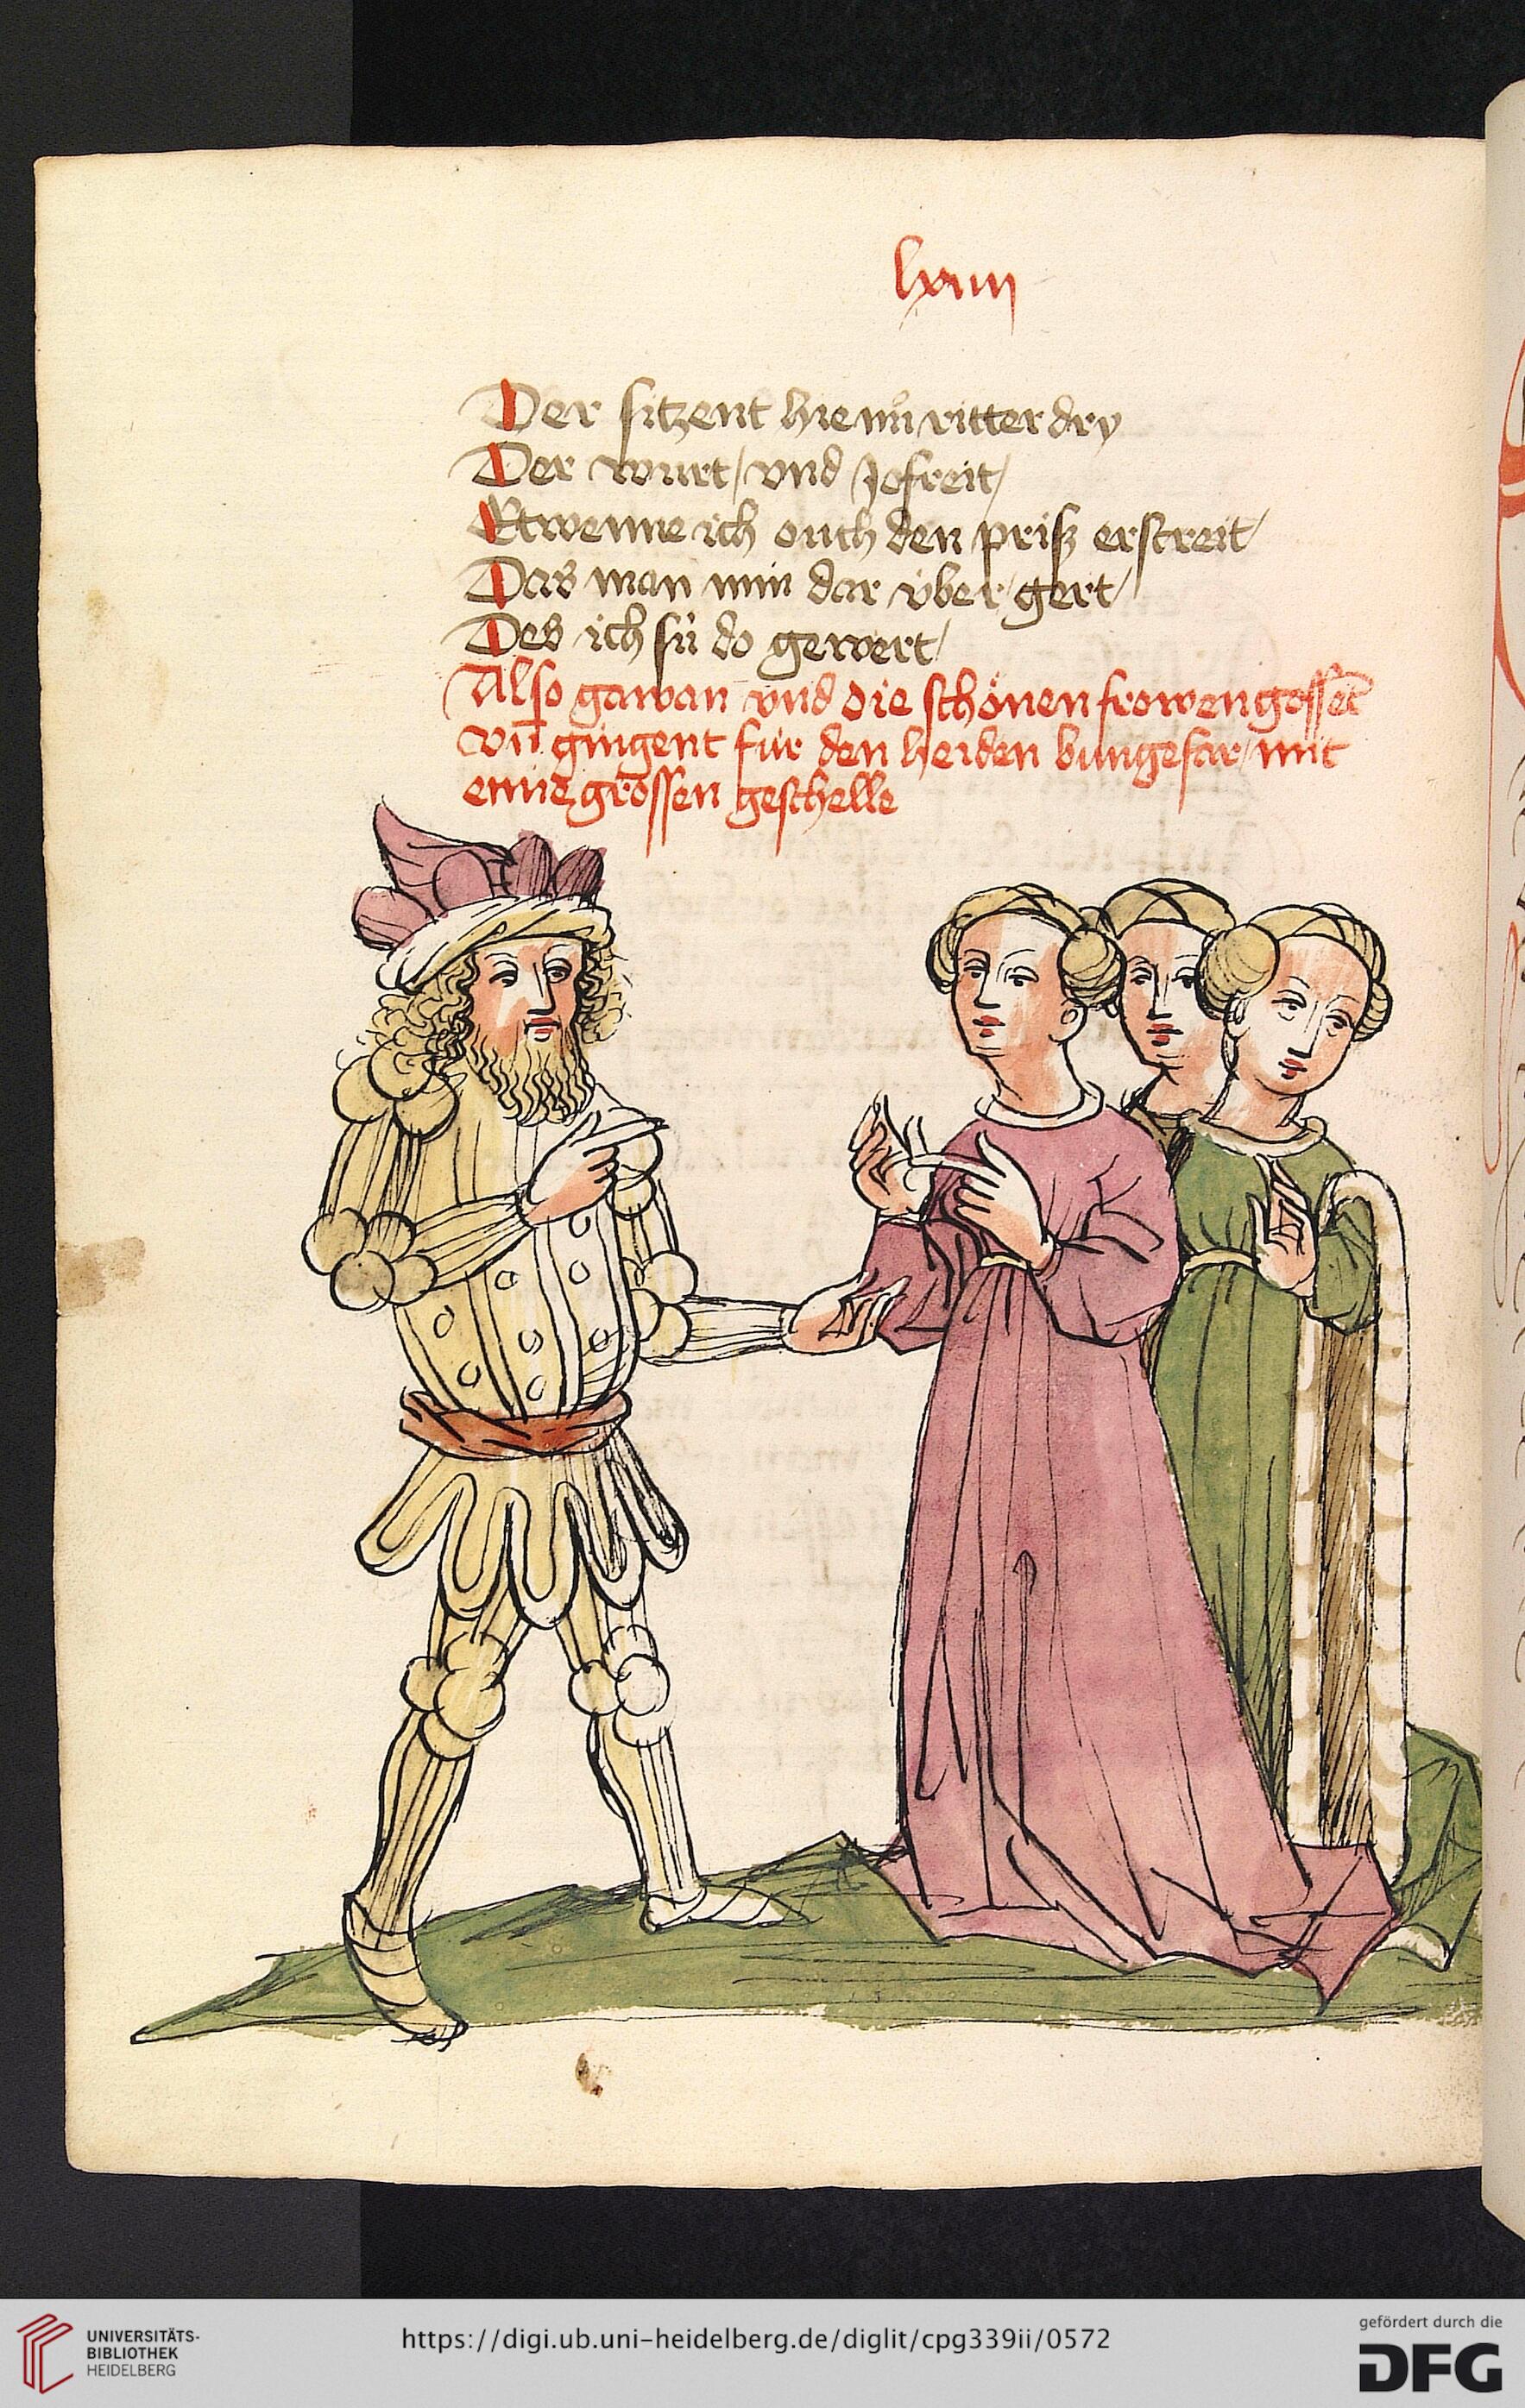 lxiiii
Der sitzent hie nuͦ ritter dry
Der wurt / vnd Jofreit /
Etwenne ich ouch den prisz erstreit /
Das man min dar über gert /
Des ich sü do gewert /
Also gawan vnd die schönen frowen gossen
vn̄ gingent für den heiden bungefar / mit
grossen geschelle
UNIVERSITÄTS-
BIBLIOTHEK
HEIDELBERG
https://digi.ub.uni-heidelberg.de/diglit/cpg339ii/0572
gefördert durch die
DFG